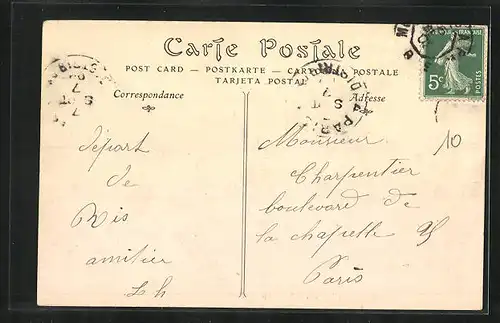 Carte Postale
POST CARD — POSTKARTE — CARTOLINA POSTALE
TARJETA POSTAL
Correspondance
Adresse
5c
POSTES
10
départ
de
Ris
amitier
L h
Monsieur
Charpentier
boulevard de
la chapelle
Paris